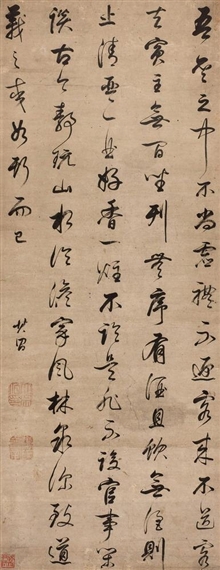 吾齋之中不尚虛禮不迎客來不送客
去賓主無間坐列無序有酒且飲無酒則
止清琴一曲好香一爐不談是非不設官事閒
談古今靜玩山水風林泉深致道
義之交如斯而已 其昌